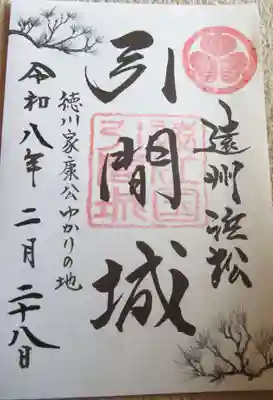 遠州浜松
引間城
徳川家康公ゆかりの地
令和八年二月二十八日